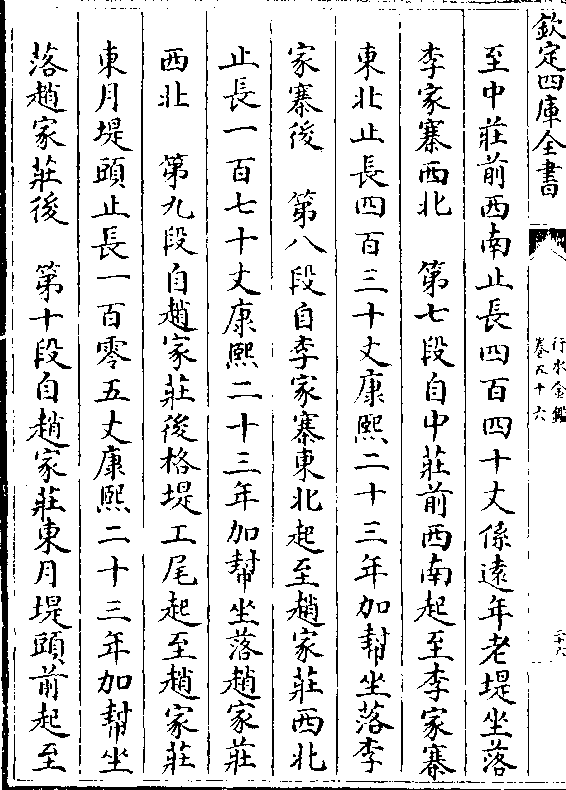 欽定四庫全書
行水金鑑
卷五十六
二十六
至中莊前西南止長四百四十丈係遠年老堤坐落
李家寨西北　第七段自中莊前西南起至李家寨
東北止長四百三十丈康熙二十三年加幫坐落李
家寨後　第八段自李家寨東北起至趙家莊西北
止長一百七十丈康熙二十三年加幫坐落趙家莊
西北　第九段自趙家莊後格堤工尾起至趙家莊
東月堤頭止長一百零五丈康熙二十三年加幫坐
落趙家莊後　第十段自趙家莊東月堤頭前起至